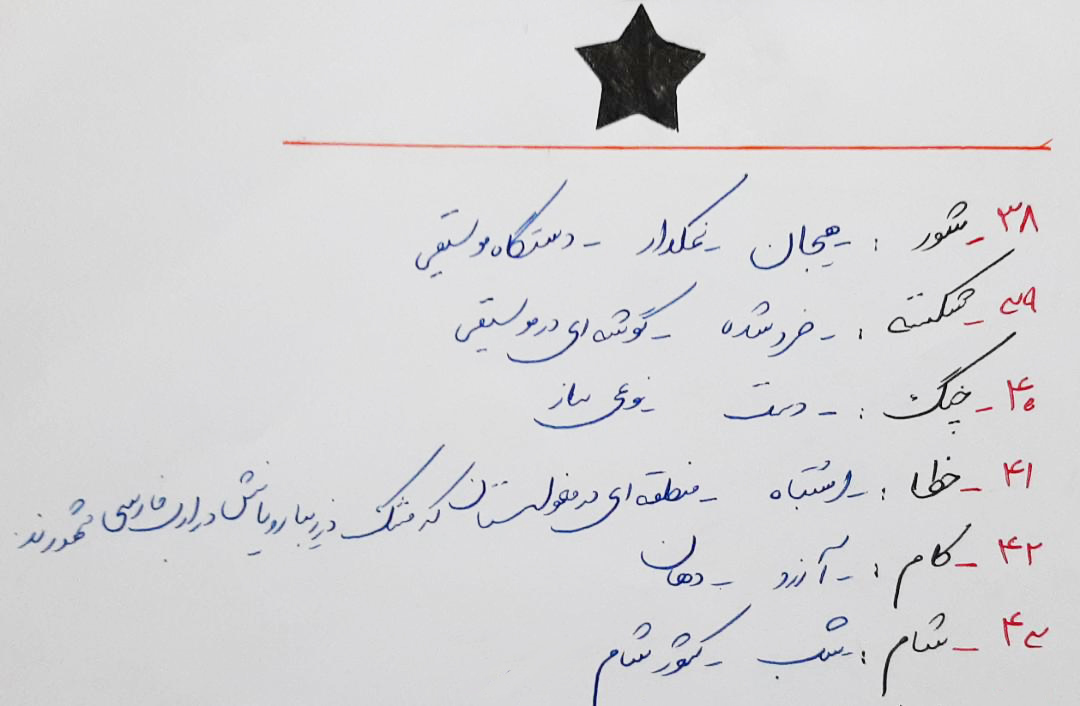 ۳۸ - شور : - هیجان - نمکدار - دستگاه موسیقی
۳۹ - شکسته : - خرد شده - گوشه ای در موسیقی
۴۰ - چنگ : - دست - نوعی ساز
۴۱ - خطا : - اشتباه - منطقه ای در مغولستان که مشک و زیبا رویانش در ادب فارسی مشهورند
۴۲ - کام : - آرزو - دهان
۴۳ - شام : - شب - کشور شام